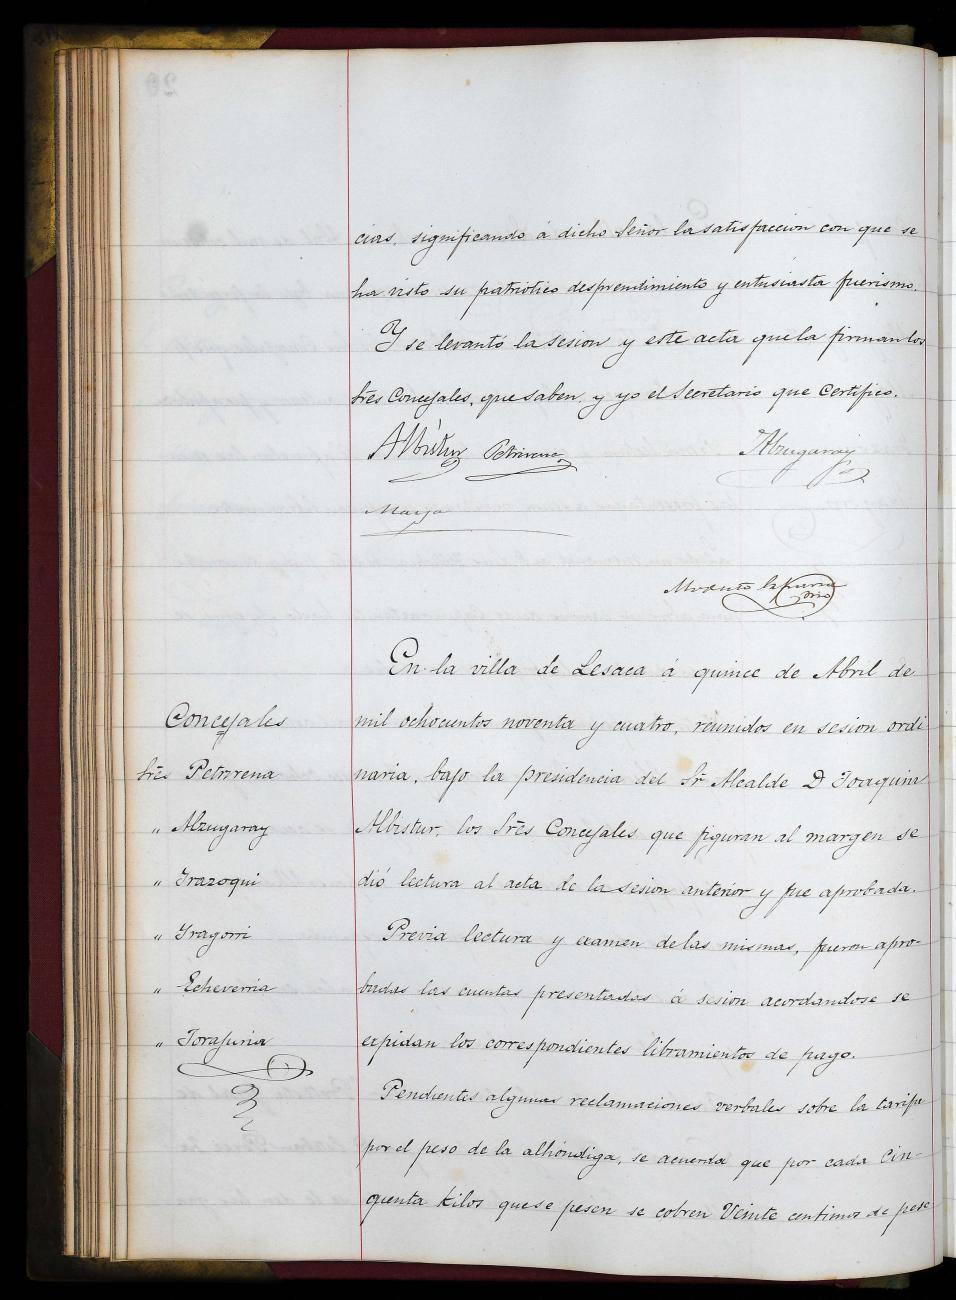 cias, significando á dicho Señor la satisfaccion con que se
ha visto su patriótico desprendimiento y entusiasta fuerismo.
Y se levantó la sesion y este acta que la firman los
Sres Concejales, que saben, y yo el Secretario que Certifico.
Albistur Petrirena Alzugaray
Maya
Modesto
En la villa de Lesaca á quince de Abril de
Concejales
mil ochocientos noventa y cuatro, reunidos en sesion ordi
Sres Petrirena
naria, bajo la presidencia del Sr Alcalde D Joaquin
" Alzugaray
Albistur, los Sres Concejales que figuran al margen se
" Irazoqui
dió lectura al acta de la sesion anterior y fue aprobada.
" Iragorri
Previa lectura y examen de las mismas, fueron apro-
" Echeverria
badas las cuentas presentadas á sesion acordandose se
expidan los correspondientes libramientos de pago.
Pendientes algunas reclamaciones verbales sobre la tarifa
por el peso de la alhóndiga, se acuerda que por cada Cin-
quenta kilos que se pesen se cobren Veinte centimos de pese